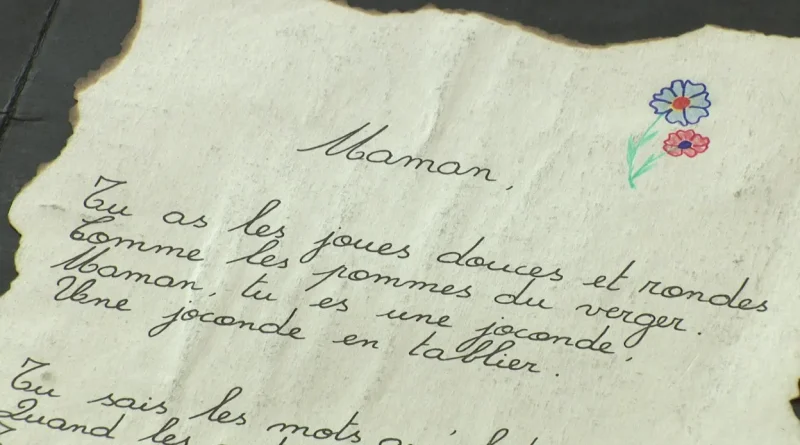 Maman,
Tu as les joues douces et rondes
Comme les pommes du verger.
Maman, tu es une joconde,
Une joconde en tablier.
Tu sais les mots
Quand les